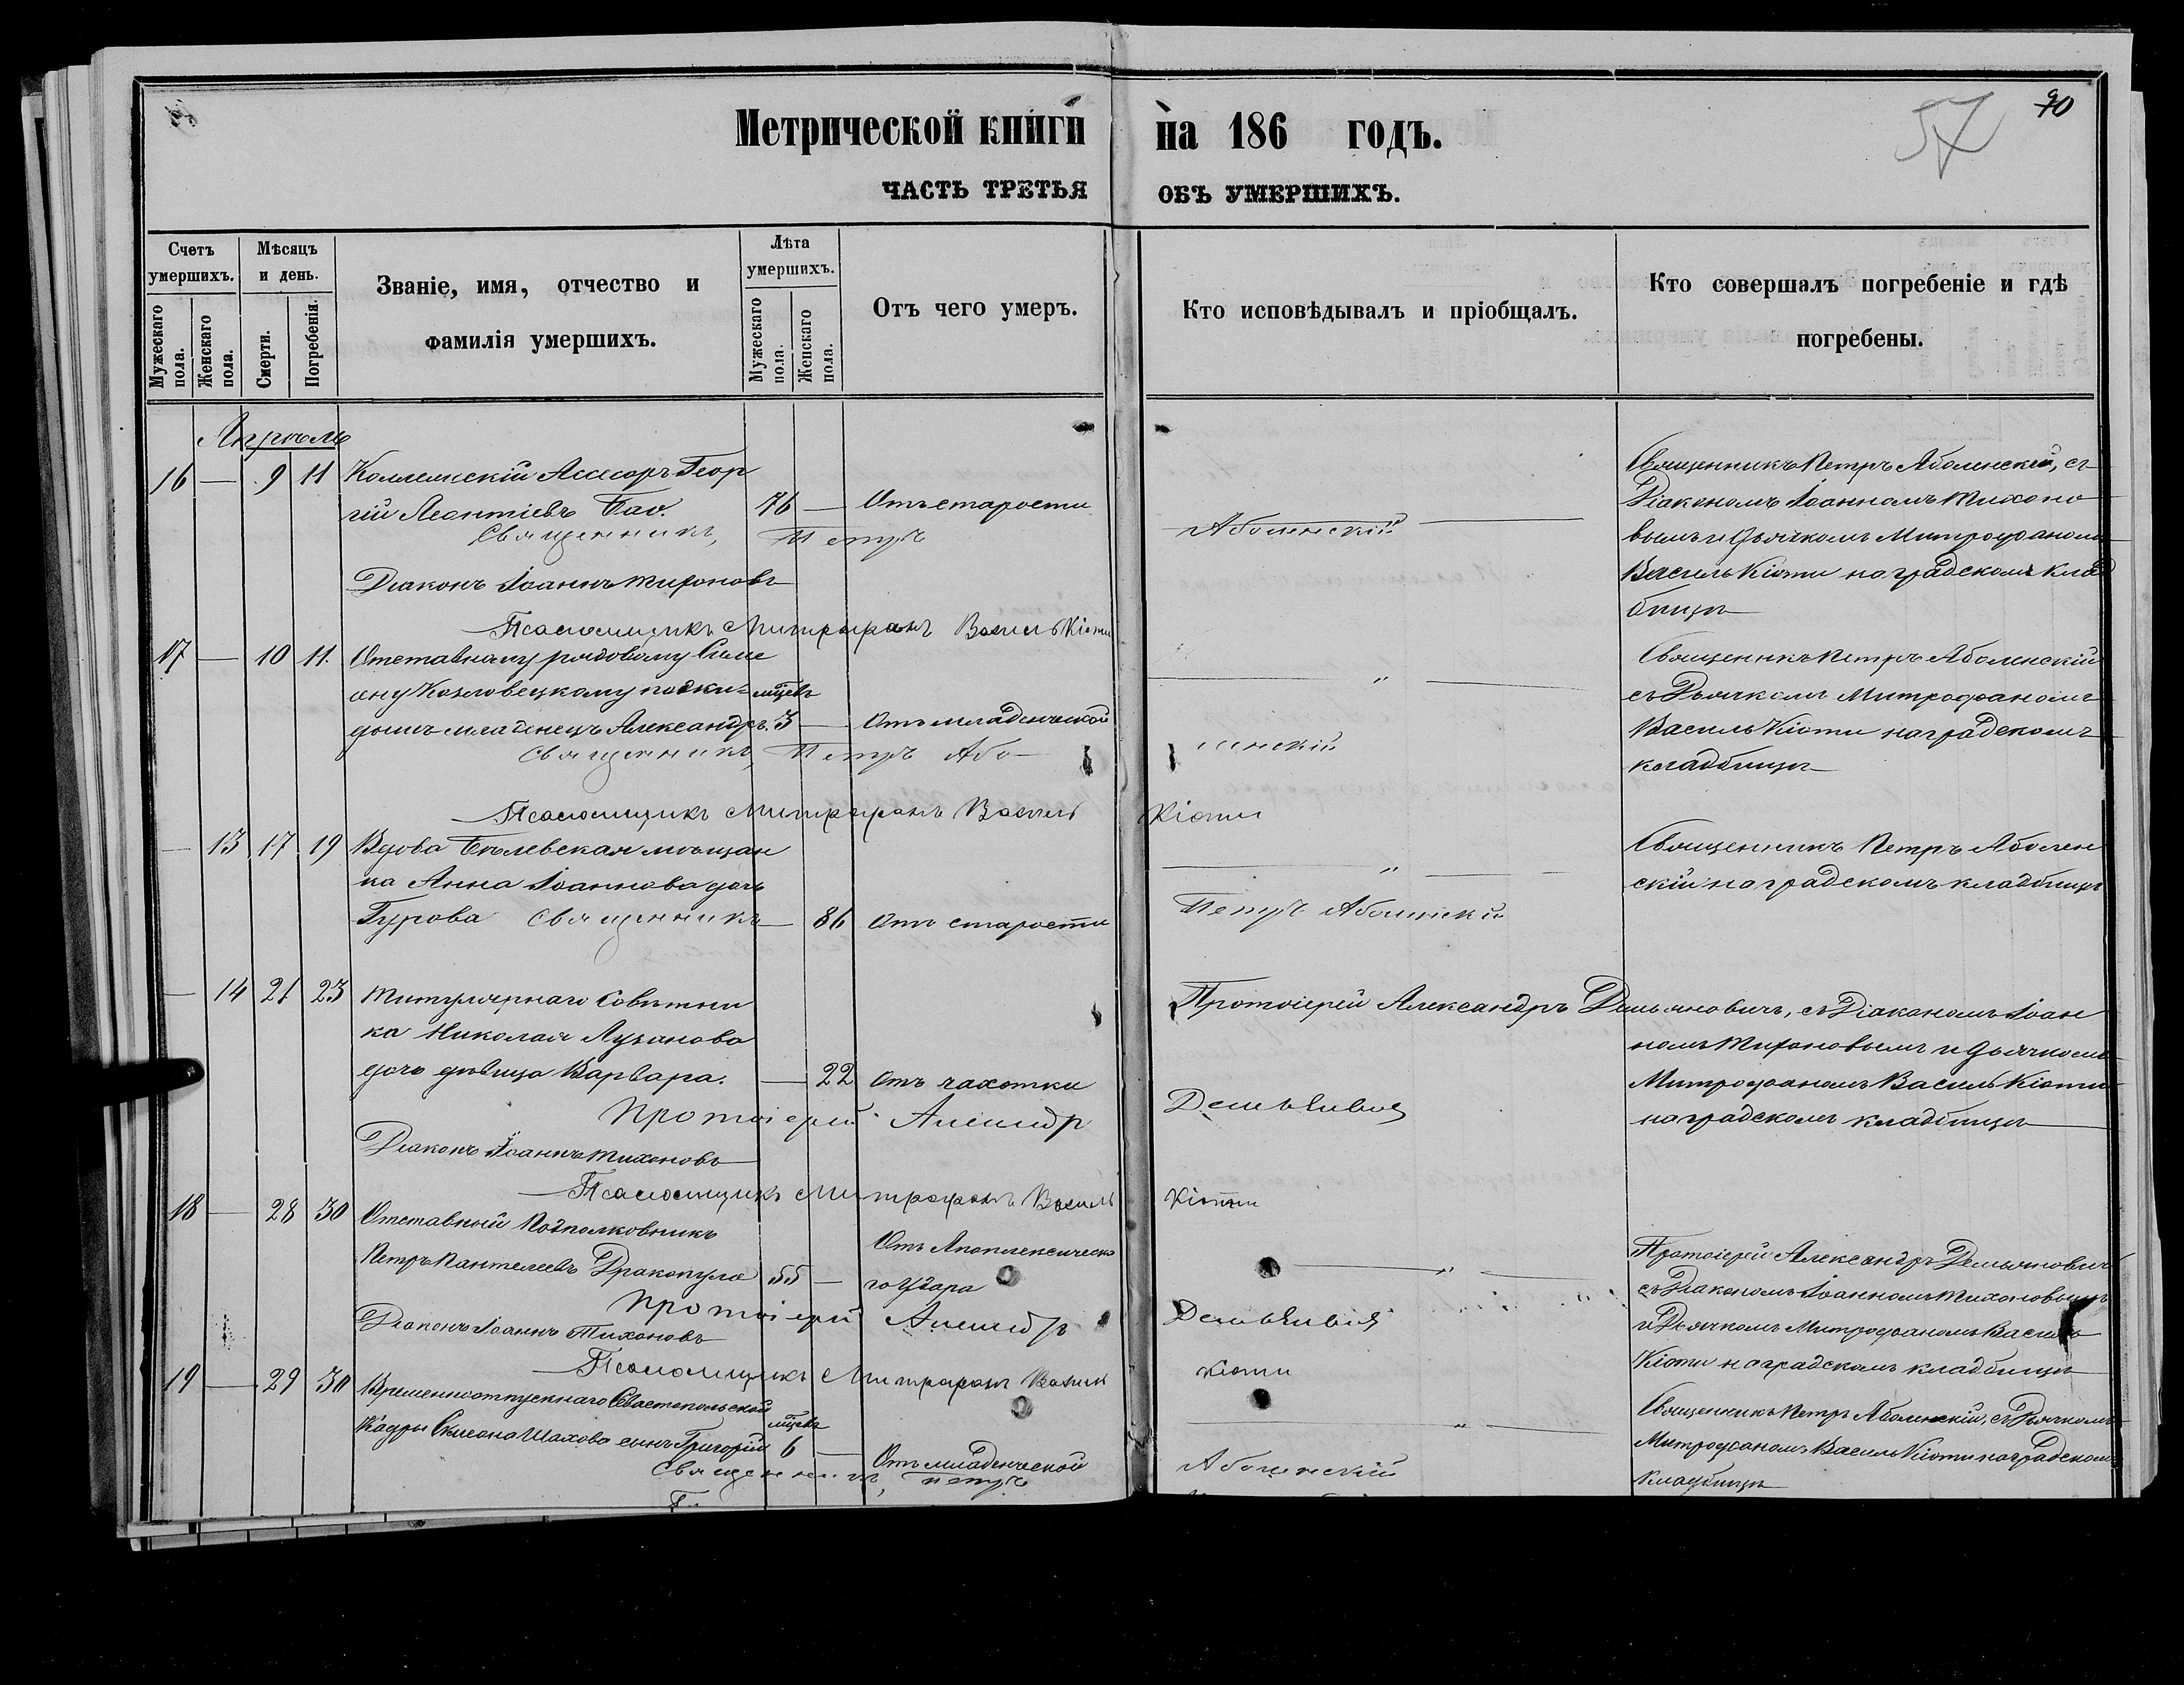 90
57
Метрической книги на 186 годъ.
ЧАСТЬ ТРЕТЬЯ ОБЪ УМЕРШИХЪ.
Счетъ умершихъ.
Мужескаго пола.
Женскаго пола.
Мѣсяцъ и день.
Смерти.
Погребенія.
Званіе, имя, отчество и
фамилія умершихъ.
Лѣта умершихъ.
Мужескаго пола.
Женскаго пола.
Отъ чего умеръ.
Кто исповѣдывалъ и пріобщалъ.
Кто совершалъ погребеніе и гдѣ
погребены.
Апрѣль
16 — 9 11 Коллежскій Ассесоръ Геор
гій Леонтіевъ 76 — Отъ старости
Священникъ, Петръ Аболенскій
Діаконъ Іоаннъ Тихоновъ
Псаломщикъ Митрофанъ Василькіоти
Священникъ Петръ Аболенскій, съ
Діакономъ Іоанномъ Тихоно
вымъ и Дьячкомъ Митрофаномъ
Василькіоти на градскомъ клад
бищѣ
17 — 10 11 Отставному рядовому Симе
ону Козловецкому подки- мѣсцевъ
дышъ младенецъ Александръ. 3 — Отъ младенческой
Священникъ, Петръ Або- ленскій
Псаломщикъ Митрофанъ Василь Кіоти
Священникъ Петръ Аболенскій
съ Дьячкомъ Митрофаномъ
Василькіоти на градскомъ
кладбищѣ
— 13 17 19 Вдова Бѣлевская мѣщан
ка Анна Іоаннова дочь
Гурова — 86 Отъ старости
Священникъ Петръ Аболенскій
Священникъ Петръ Аболен
скій на градскомъ кладбищѣ
— 14 21 23 Титулярнаго Совѣтни
ка Николая Лузанова
дочь дѣвица Варвара. — 22 Отъ чахотки
Протоіерей Александръ Демьяновичъ, съ Діакономъ Іоан
номъ Тихоновымъ и Дьячкомъ
Митрофаномъ Василькіоти
на градскомъ кладбищѣ
Протоіерей
Діаконъ Іоаннъ Тихоновъ
Псаломщикъ Митрофанъ Василь Кіоти
18 — 28 30 Отставной Подполковникъ
Петръ Пантелеевъ Дракопуло 55 — Отъ Апоплексическа
го удара
Протоіерей
Діаконъ Іоаннъ Тихоновъ
Псаломщикъ Митрофанъ Василь Кіоти
Протоіерей Александръ Демьяновичъ
съ Діакономъ Іоанномъ Тихоновымъ
и Дьячкомъ Митрофаномъ Василь
Кіоти на градскомъ кладбищѣ
19 — 29 30 Временноотпускнаго Севастопольской
Кадры Симеона Шахова сынъ Григорій мѣсцевъ 6 — Отъ младенческой
Священникъ, Петръ Аболенскій
Священникъ Петръ Аболенскій, съ Дьячкомъ
Митрофаномъ Василькіоти на градскомъ
кладбищѣ